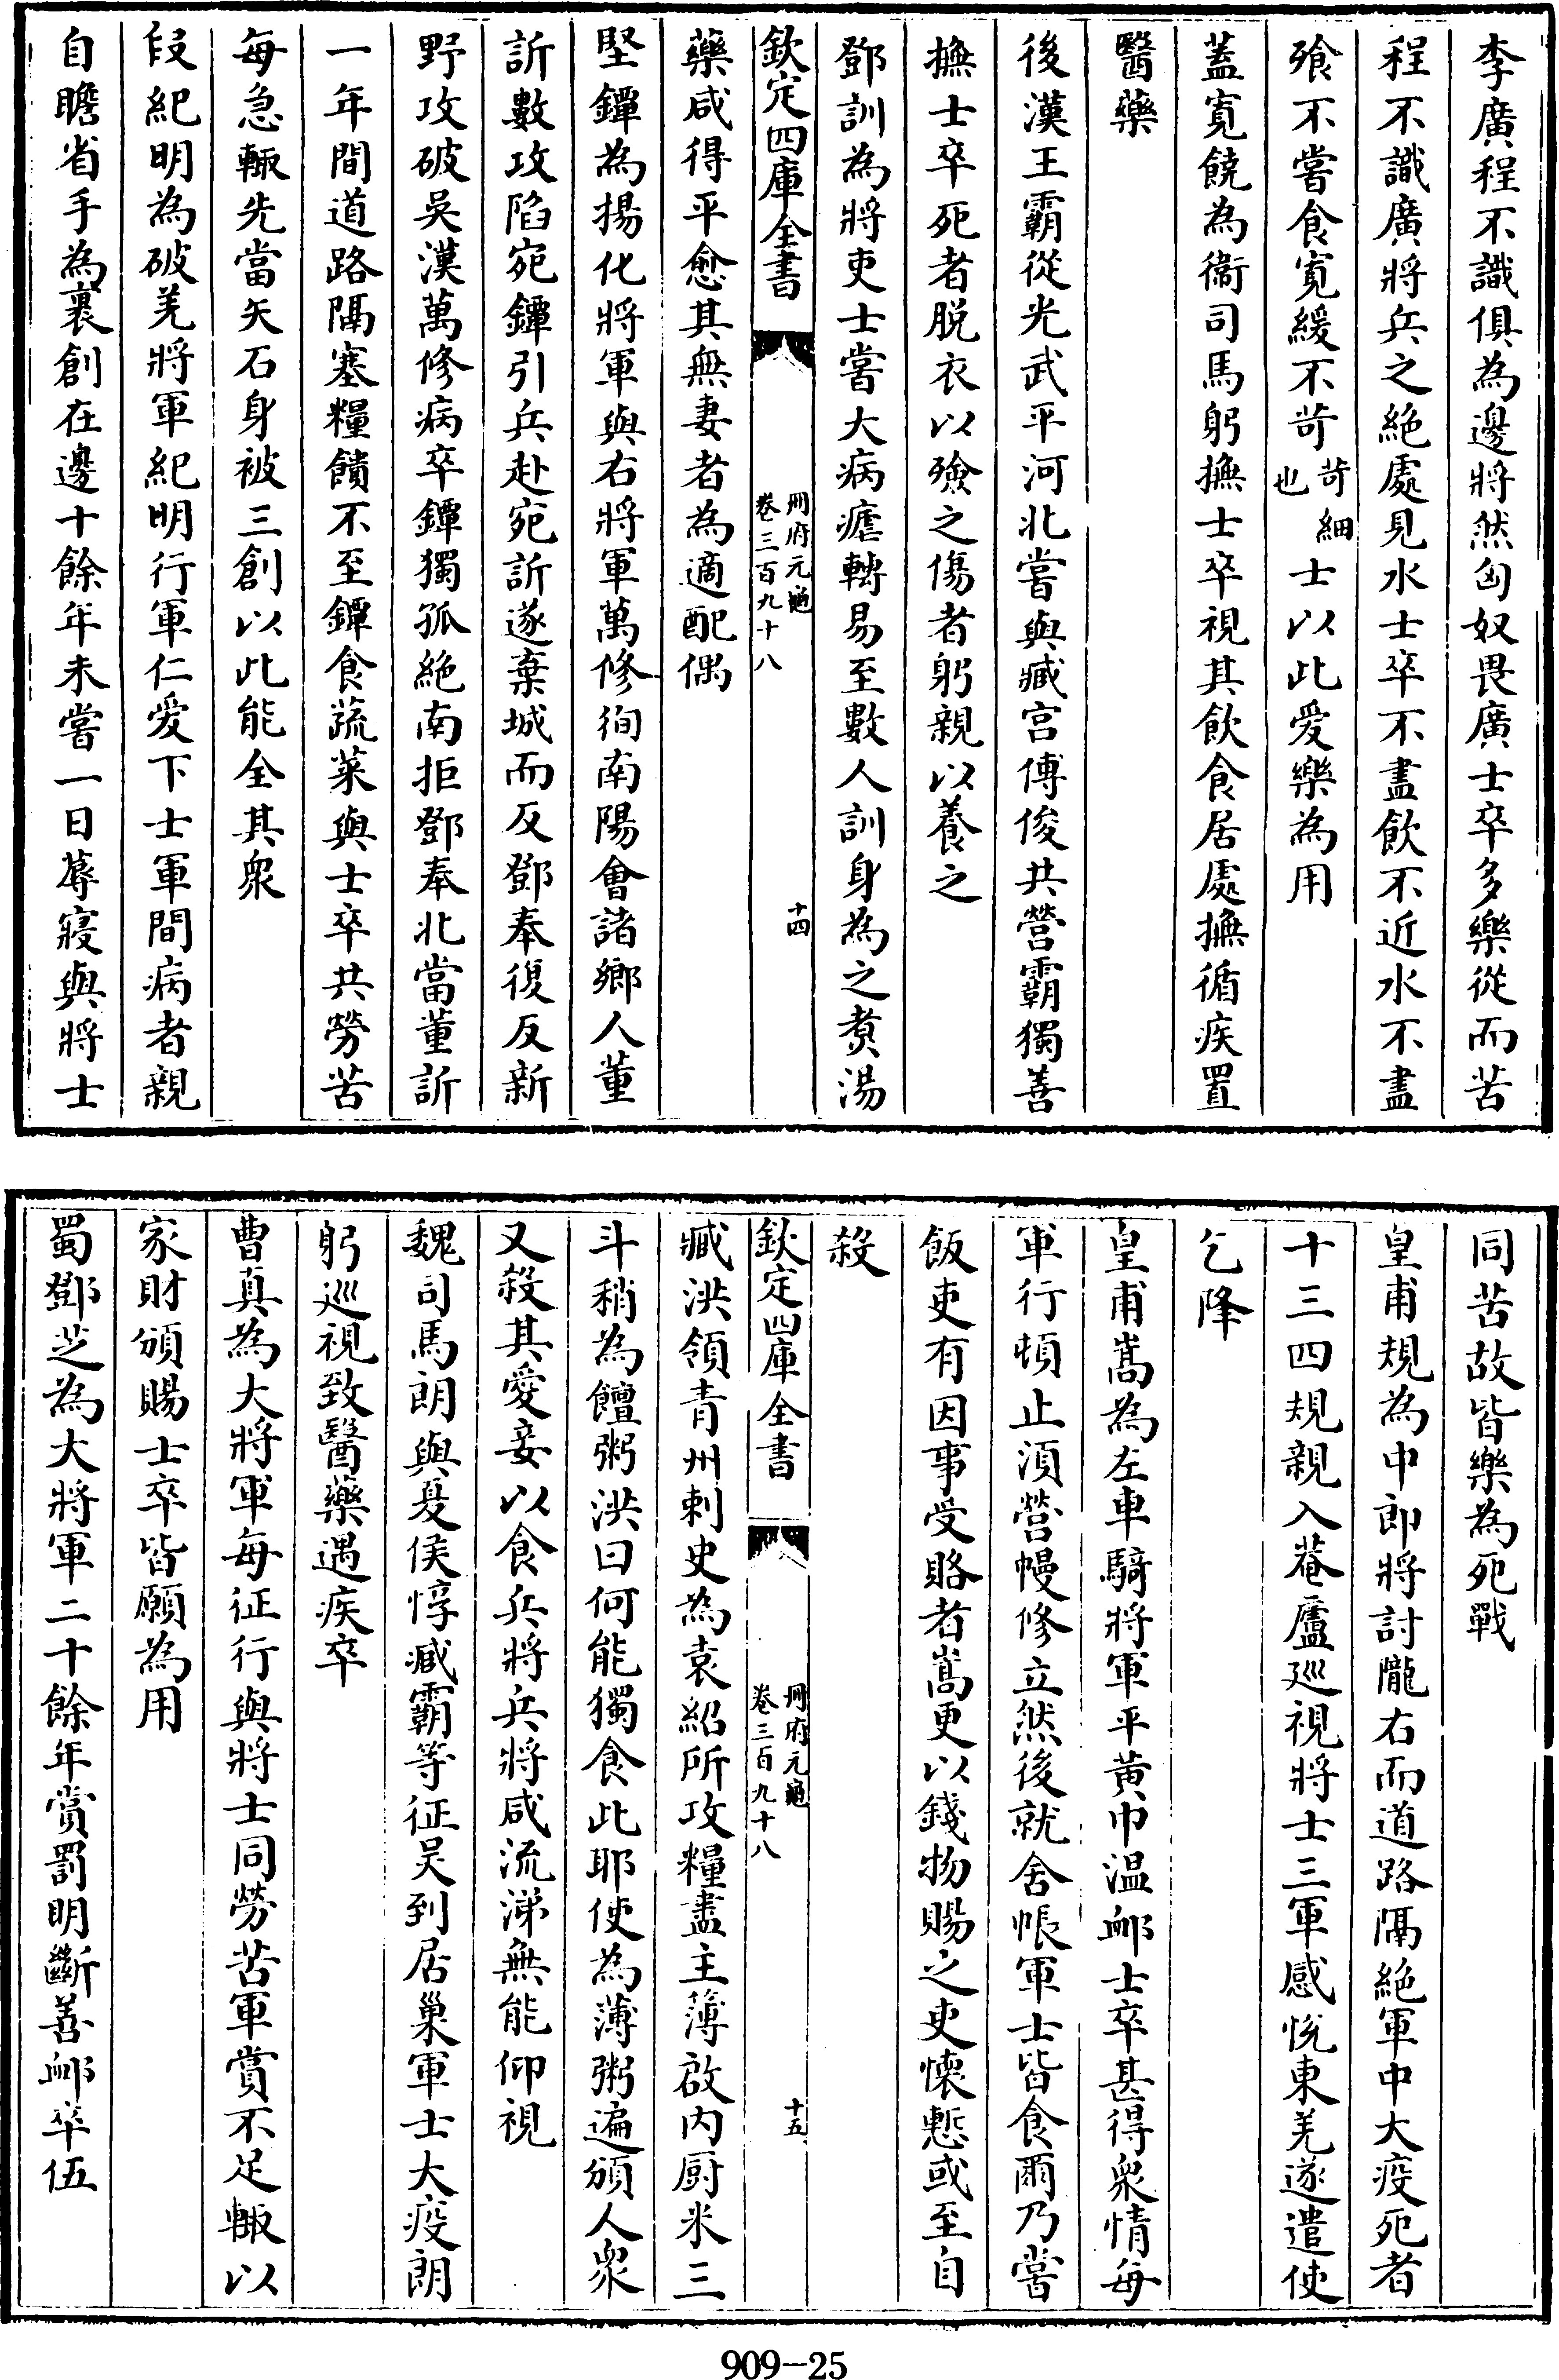 李廣程不識俱為邊將然匈奴畏廣士卒多樂從而苦
程不識廣將兵之絶處見水士卒不盡飲不近水不盡
飱不嘗食寛緩不苛苛細也士以此愛樂為用
蓋寛饒為衞司馬躬撫士卒視其飲食居處撫循疾置
醫藥
後漢王霸從光武平河北嘗與臧宫傅俊共營霸獨善
撫士卒死者脱衣以殮之傷者躬親以養之
鄧訓為將吏士嘗大病瘧轉易至數人訓身為之煑湯
欽定四庫全書
冊府元龜
卷三百九十八
十四
藥咸得平愈其無妻者為適配偶
堅鐔為揚化將軍與右將軍萬修徇南陽會諸鄉人董
訢數攻陷宛鐔引兵赴宛訢遂棄城而反鄧奉復反新
野攻破吳漢萬修病卒鐔獨孤絶南拒鄧奉北當董訢
一年間道路隔塞糧饋不至鐔食蔬菜與士卒共勞苦
每急輙先當矢石身被三創以此能全其衆
段紀明為破羌將軍紀明行軍仁愛下士軍間病者親
自瞻省手為裹創在邊十餘年未嘗一日蓐寢與將士
同苦故皆樂為死戰
皇甫規為中郎將討隴右而道路隔絶軍中大疫死者
十三四規親入菴廬巡視將士三軍感悅東羌遂遣使
乞降
皇甫嵩為左車騎將軍平黄巾温䘏士卒甚得衆情每
軍行頓止湏營幔修立然後就舍帳軍士皆食爾乃嘗
飯吏有因事受賂者嵩更以錢物賜之吏懷慙或至自
殺
欽定四庫全書
冊府元龜
卷三百九十八
十五
臧洪領青州刺史為袁紹所攻糧盡主簿啟内厨米三
斗稍為饘粥洪曰何能獨食此耶使為薄粥遍頒人衆
又殺其愛妾以食兵將兵將咸流涕無能仰視
魏司馬朗與夏侯惇臧霸等征吳到居巢軍士大疫朗
躬巡視致醫藥遇疾卒
曹真為大將軍每征行與將士同勞苦軍賞不足輙以
家財頒賜士卒皆願為用
蜀鄧芝為大將軍二十餘年賞罰明斷善䘏卒伍
909-25